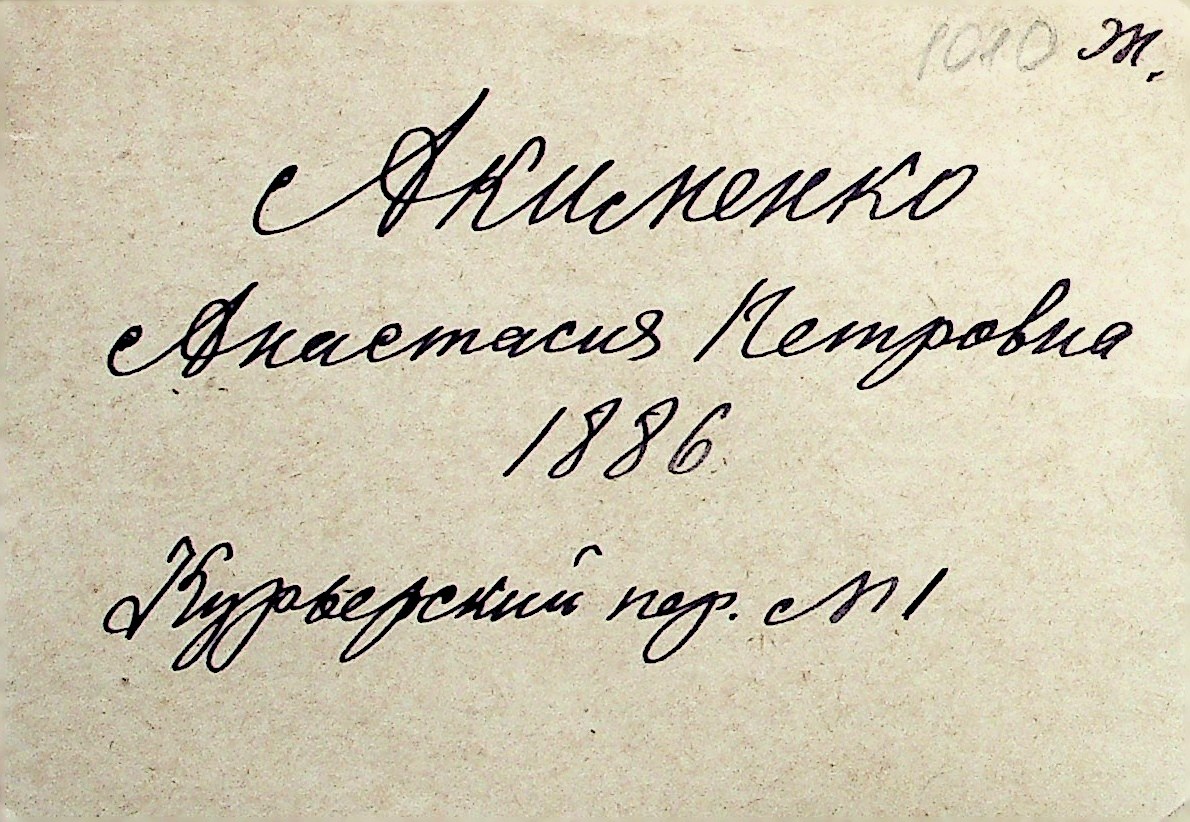 1010 Ж.
Акименко
Анастасия Петровна
1886
Курьерский пер. № 1